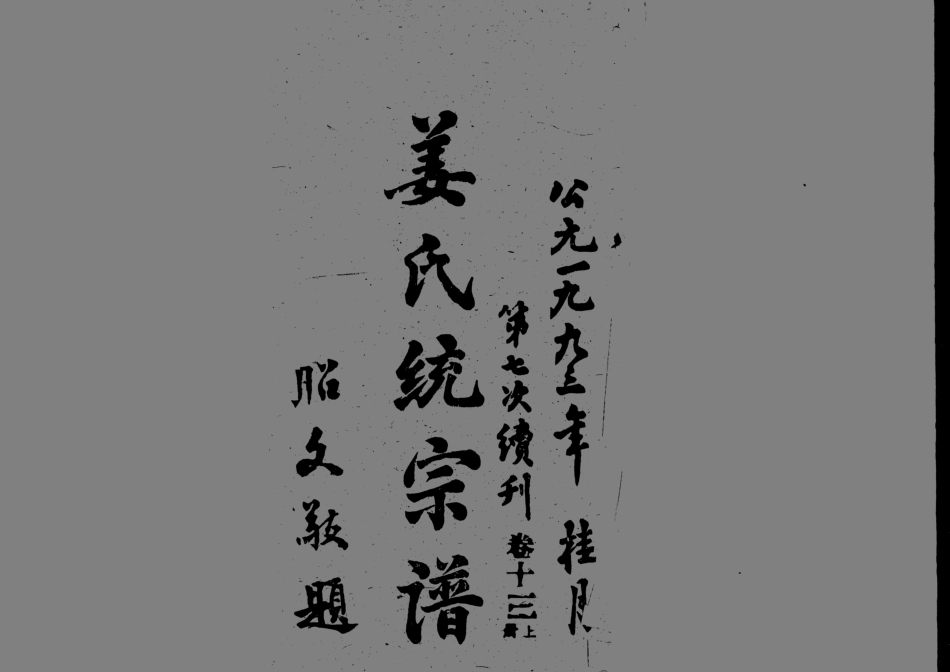 公元一九九三年 桂月
第七次續刊 卷十三 上冊
姜氏統宗譜
昭文敬題